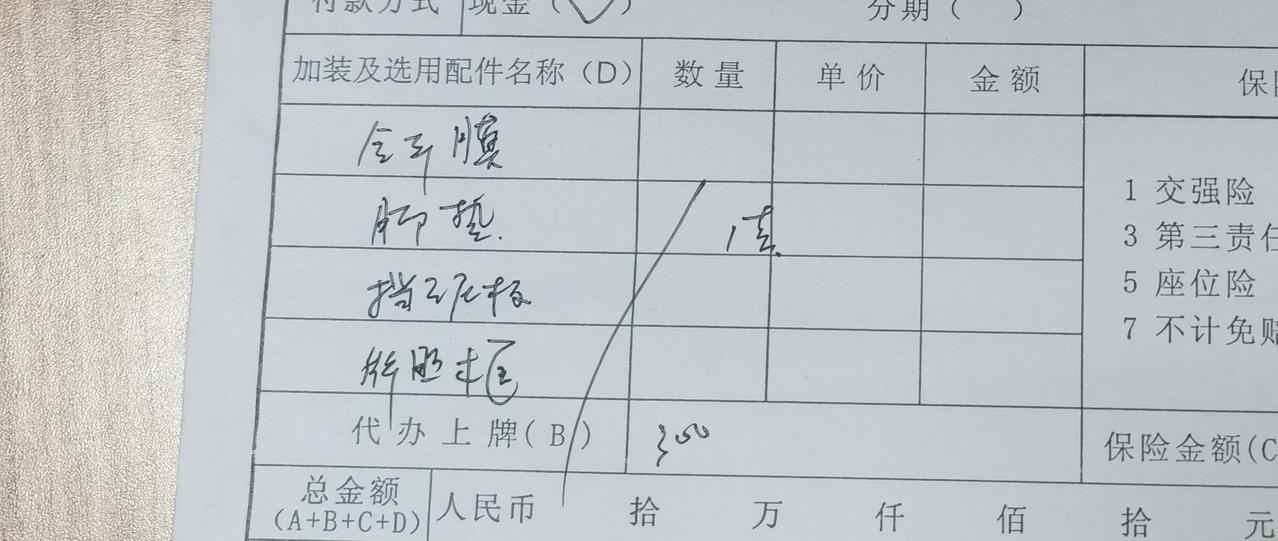 付款方式 现金（✓） 分期（ ）
加装及选用配件名称（D） 数量 单价 金额 保
全车膜
脚垫
挡泥板
牌照框
1 交强险
3 第三责任
5 座位险
7 不计免赔
代办上牌(B) 300 保险金额(C
总金额 (A+B+C+D) 人民币 拾 万 仟 佰 拾 元